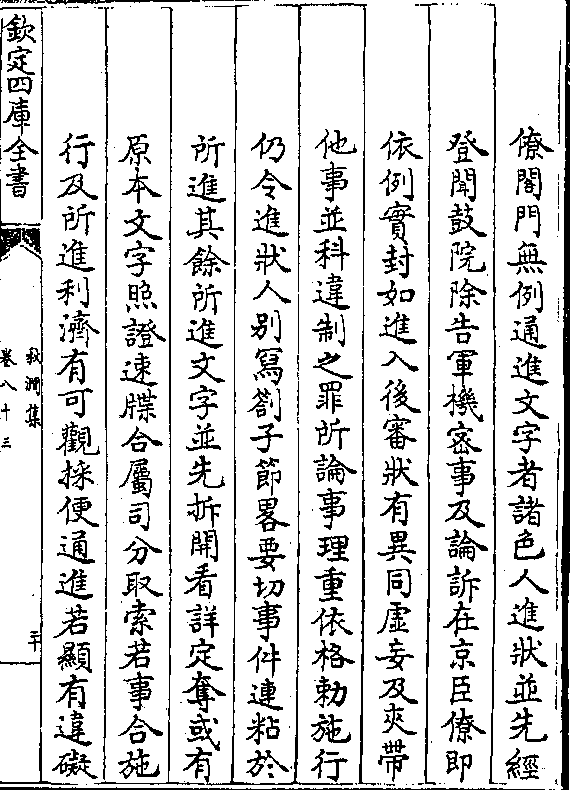 僚閤門無例通進文字者諸色人進狀並先經
登聞鼓院除告軍機宻事及論訴在京臣僚即
依例實封如進入後審狀有異同虛妄及夾帶
他事並科違制之罪所論事理重依格勅施行
仍令進狀人别寫劄子節畧要切事件連粘於
所進其餘所進文字並先拆開看詳定奪或有
原本文字照證速牒合屬司分取索若事合施
行及所進利濟有可觀採便通進若顯有違礙
欽定四庫全書
秋澗集
卷八十三